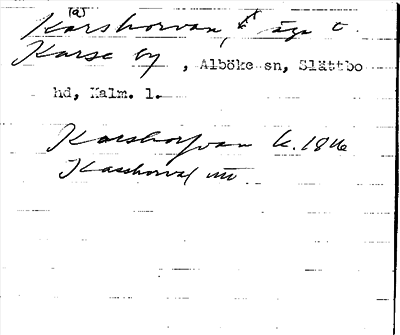 (a)
Karshorvan, äga t.
Karse by, Alböke sn, Slättbo
hd, Kalm. l.
Karshorfvan k. 18
Karshorva